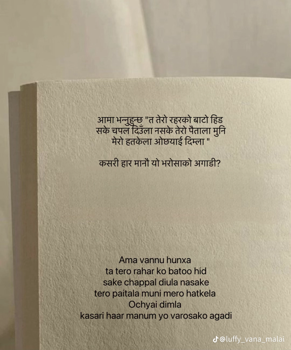 आमा भन्नुहुन्छ "त तेरो रहरको बाटो हिड
सके चपल दिउँला नसके तेरो पैताला मुनि
मेरो हतकेला ओछयाई दिम्ला "
कसरी हार मानौ यो भरोसाको अगाडी?
Ama vannu hunxa
ta tero rahar ko batoo hid
sake chappal diula nasake
tero paitala muni mero hatkela
Ochyai dimla
kasari haar manum yo varosako agadi
@luffy_vana_malai